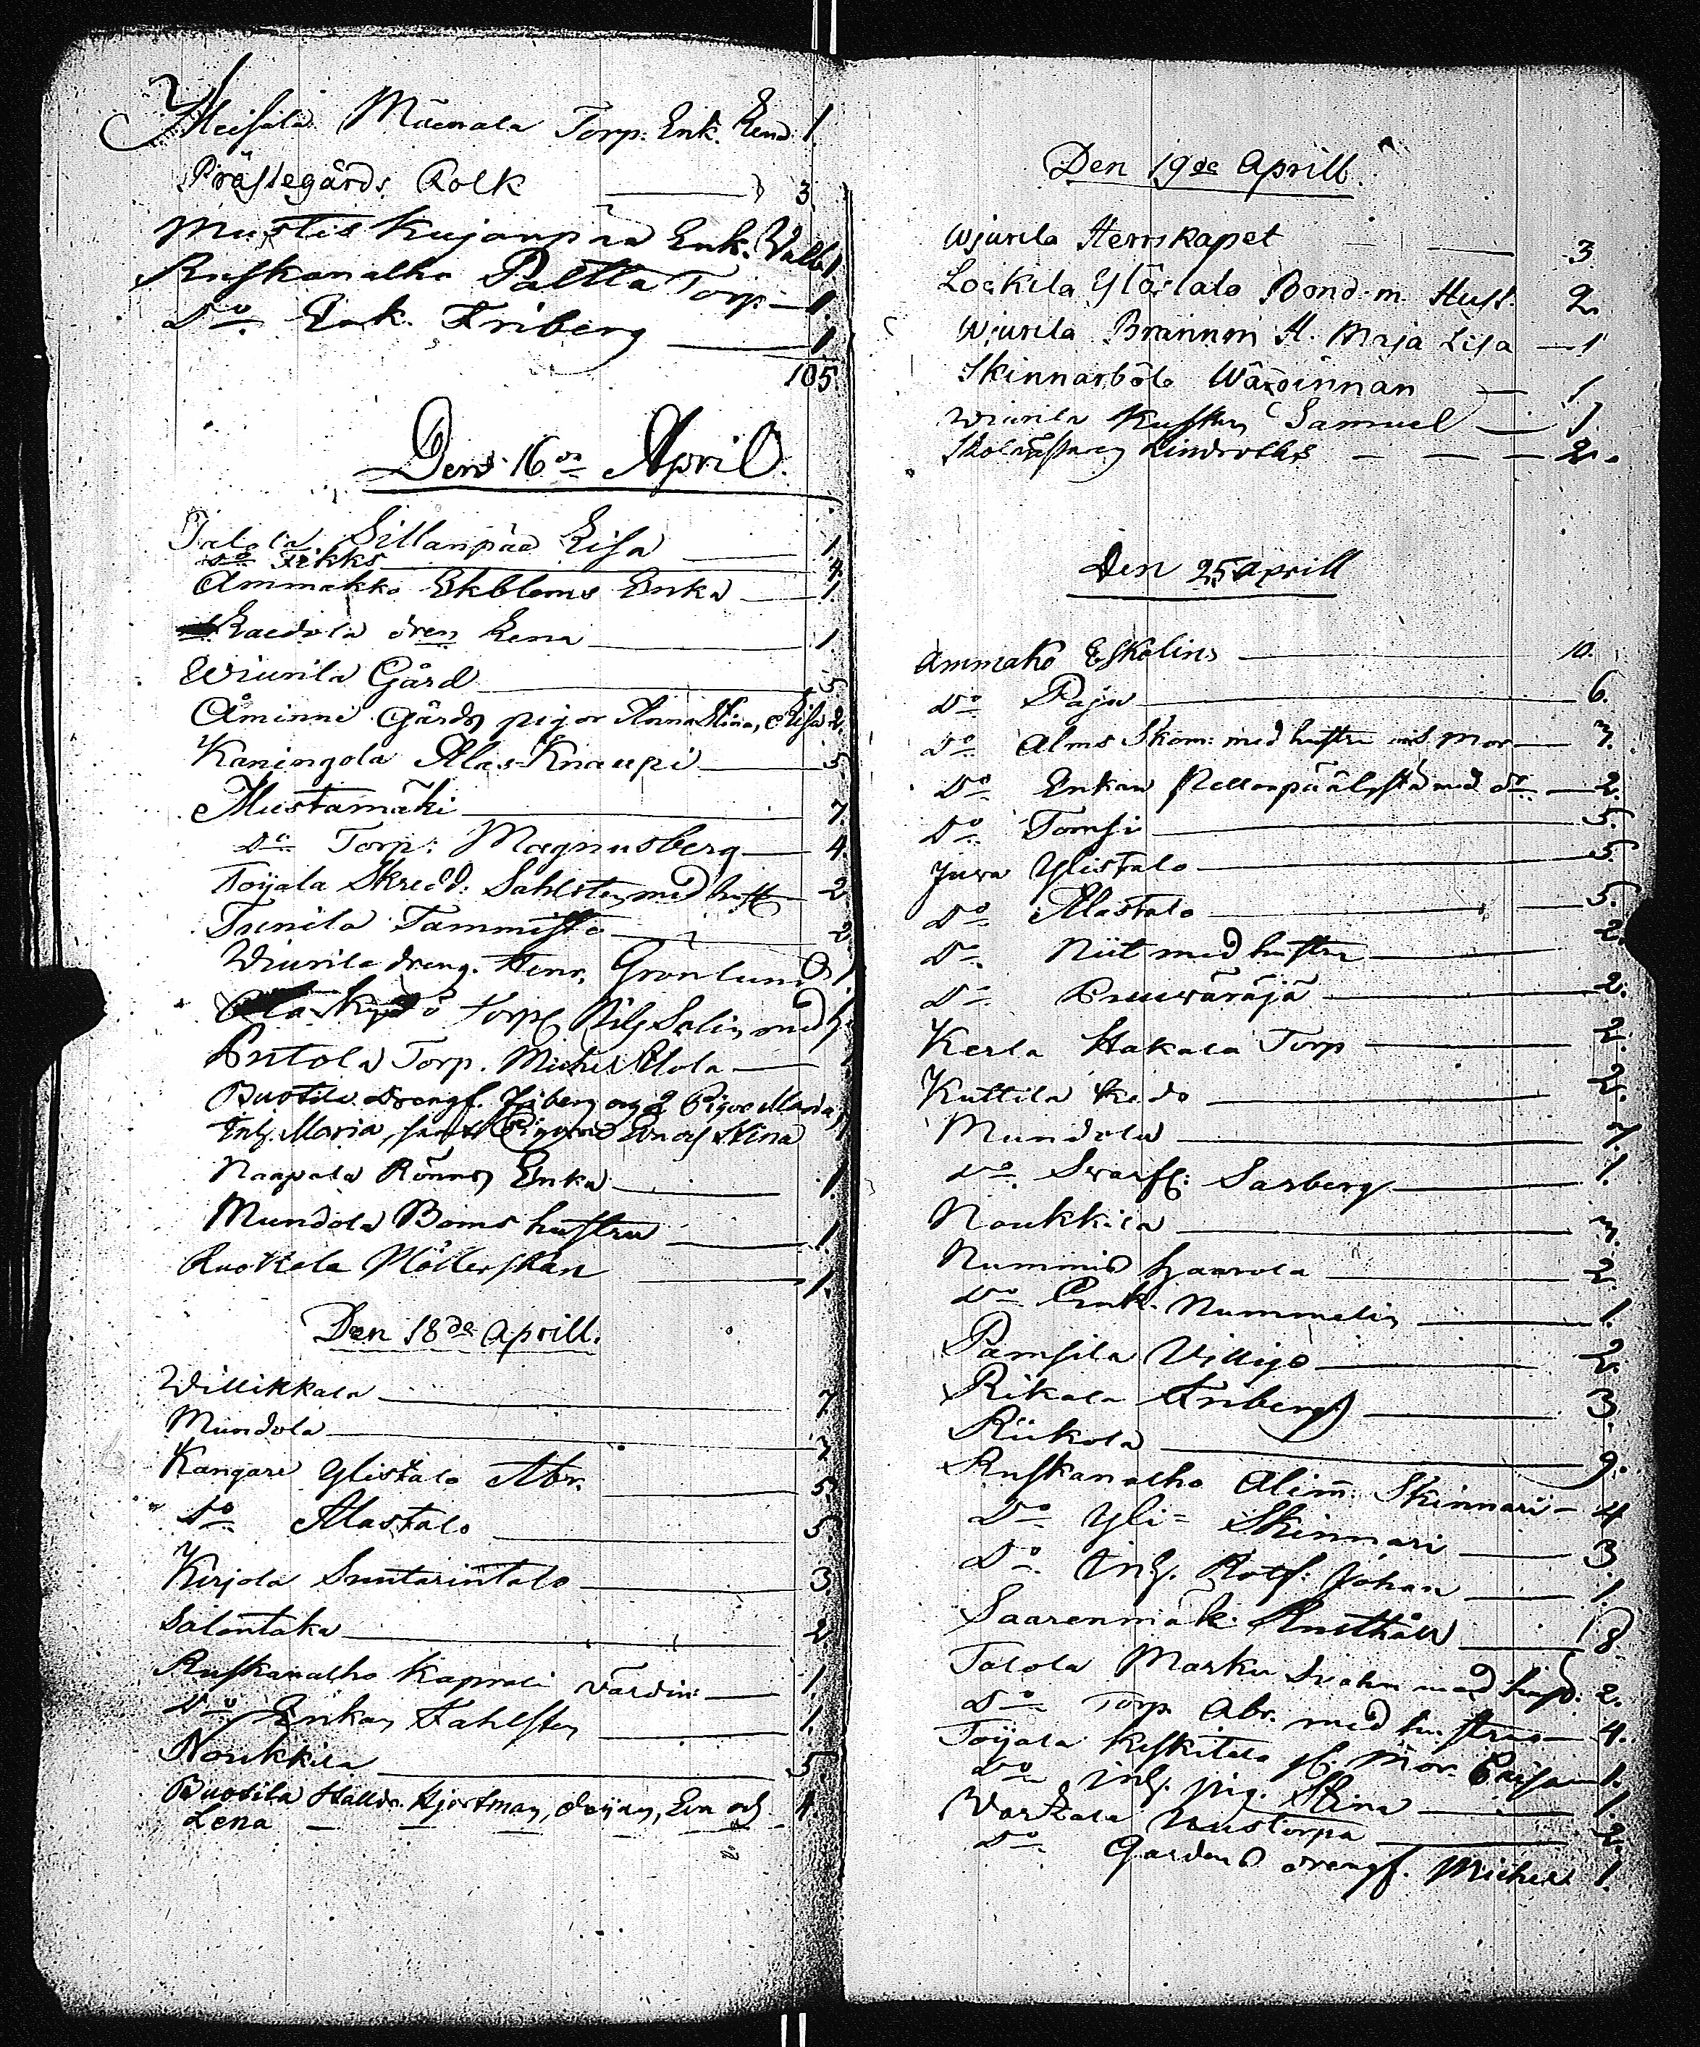 Meisala Mäenala Torp. Enk. Lena 1.
Prästegårds Folk 3.
Mustis Kujanpää Enk. Valb. 1.
Ruskanalho Paltta Torp. 1.
Do Enk. Friberg 1
105.
Den 16de April.
Talola Sillanpää Lisa 1.
Do Fikks 4
Ammakko Ekbloms Enka 1.
Kaedola dren Lena 1.
Wiurila Gård 5.
Åminne Gårds pigor Anna Stina, Lisa 2.
Kaningola Alas-Knaapi 5
Mustamäki 7.
Do Torp: Magnusberg 4.
Toijala Skredd: Sahlsten med hust 2
Tunila Tammisto 2
Wiurila dreng. Henr. Grönlund 1
Torp Salin med
Antola Torp. Michel
Buotila Drengf. Friberg og 2 Pigor Maria,
Inh. Maria, samt Pigorne Eva och Stina
Naapala Rönns Enka 1.
Mundola Boms hustru 1.
Ruokola Möllerskan 1.
Den 18de Aprill.
Willikkala 7
Mundola 7
Kangare Ylistalo Abr. 5
Do Alastalo 5
Kirjola Suntarintalo 3.
Salontaka 2
Ruskanalho Kaprali Värdin: 1.
Do Enkan Fahlsten 1.
Noukkila 5.
Buotila Hålld. Hjortman, drijan, Eva och 4.
Lena
Den 19de Aprill.
Wjurila Herrskapet 3.
Lockila Ylöstalo Bond. m. Hust. 2.
Wjurila Brännm H. Maja Lisa 1
Skinnarböle Wärdinnan 1
Wiurila Kusken Samuel 1.
Skolmästaren Lindroths 2.
Den 25 Aprill
Ammakö Eskelins 10.
Do Paju 6.
Do Alms Skom: med hustru o. S. Mor 3.
Do Enkan med do 2.
Do Tomsi 5.
Juva Ylistalo 5.
Do Alastalo 5.
Do Niit med hustru 2.
Do Pruuväräjä 2.
Kerla Hakala Torp 2.
Kuttila Kedo 2.
Mundola 7.
Do Svarf: Sarberg 1.
Noukkila 3.
Nummis Haarola 2
Do Enk. Nummelin 1.
Pamsila Villigs 2.
Rikala Fribergs 3.
Riikola 9.
Ruskanalho Alim: Skinnari 4
Do Yli= Skinnari 3
Do Inh. Rotf: Johan 1.
Saarenmäk: Rusthåll 18.
Talola Marku Svahn med husd: 2.
Do Torp. Abr. med hustru 4.
Toijala Keskitalo gl. Mor. Caisa 1.
Do inh. pig. Stina 1.
Wartzala Uustorpa 2.
Do Gårdens drengf. Michel 1.